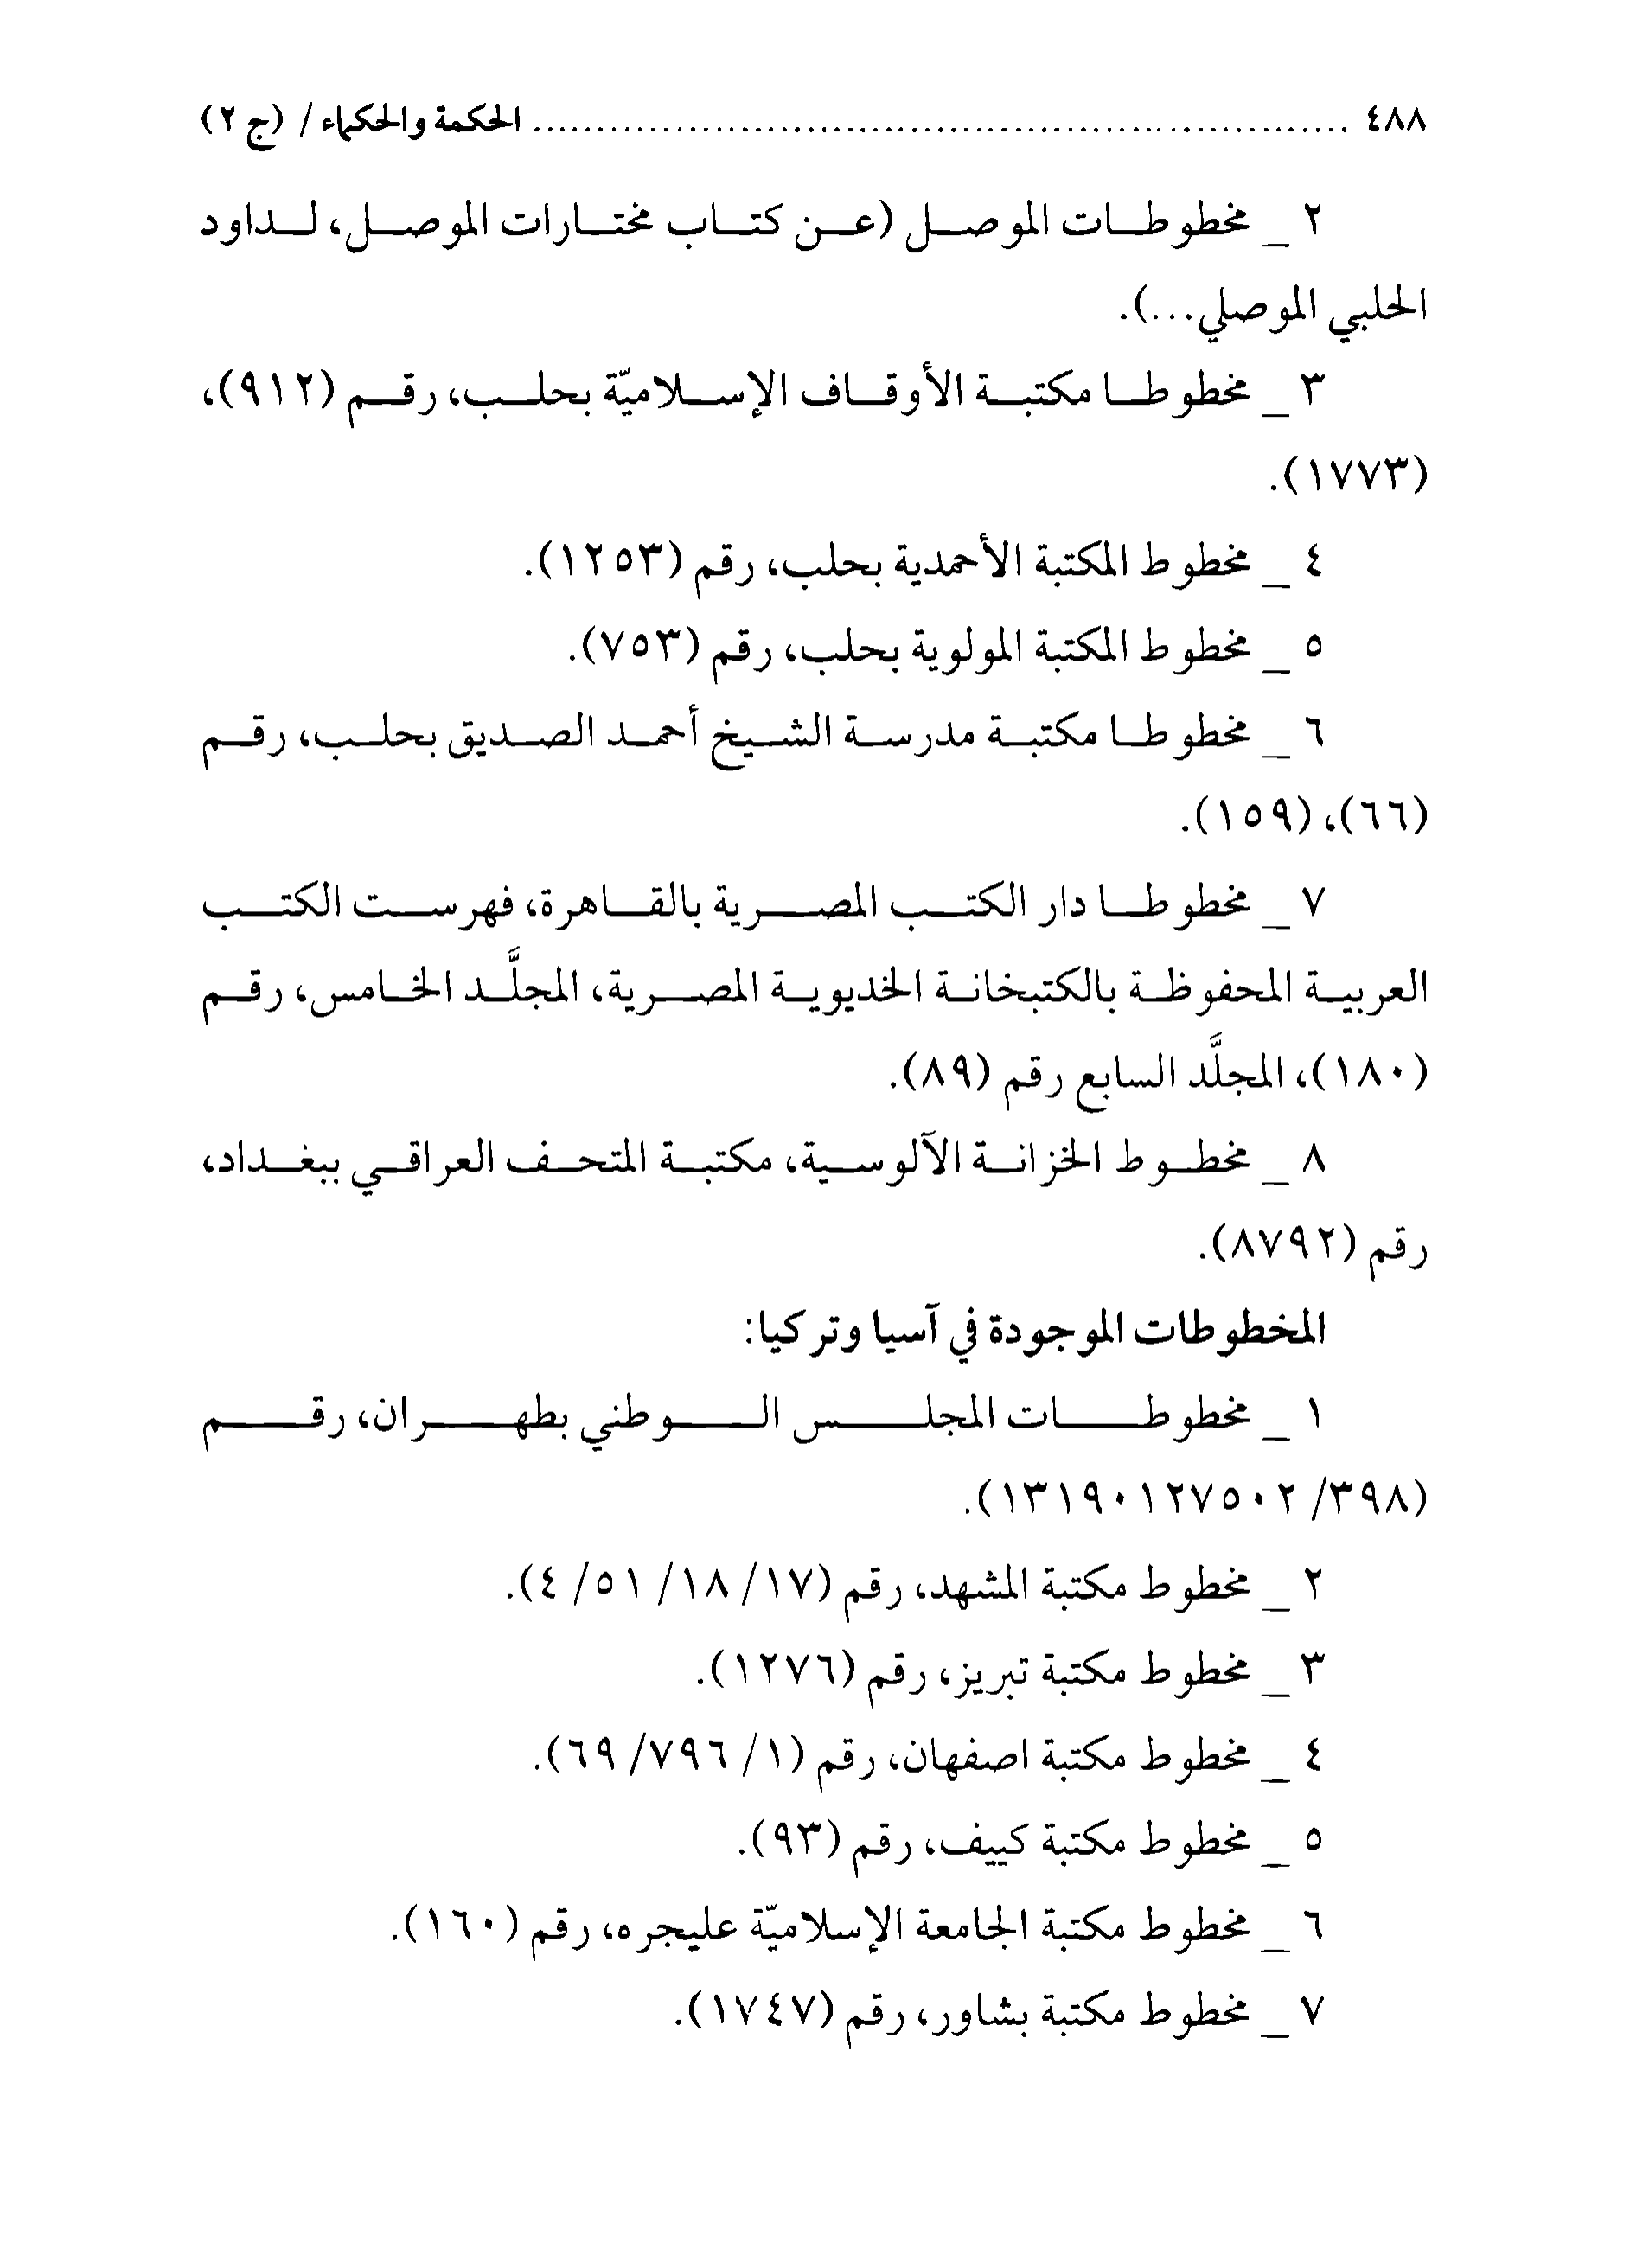 ٤٨٨ ................................................................ الحكمة والحكماء / (ج ٢)
٢ _ مخطوطات الموصل (عن كتاب مختارات الموصل، لداود
الحلبي الموصلي...).
٣ _ مخطوطا مكتبة الأوقاف الإسلاميّة بحلب، رقم (٩١٢)،
(١٧٧٣).
٤ _ مخطوط المكتبة الأحمدية بحلب، رقم (١٢٥٣).
٥ _ مخطوط المكتبة المولوية بحلب، رقم (٧٥٣).
٦ _ مخطوطا مكتبة مدرسة الشيخ أحمد الصديق بحلب، رقم
(٦٦)، (١٥٩).
٧ _ مخطوطا دار الكتب المصرية بالقاهرة، فهرست الكتب
العربية المحفوظة بالكتبخانة الخديوية المصرية، المجلَّد الخامس، رقم
(١٨٠)، المجلَّد السابع رقم (٨٩).
٨ _ مخطوط الخزانة الآلوسية، مكتبة المتحف العراقي ببغداد،
رقم (٨٧٩٢).
المخطوطات الموجودة في آسيا وتركيا:
١ _ مخطوطات المجلس الوطني بطهران، رقم
(٣٩٨/ ١٣١٩٠١٢٧٥٠٢).
٢ _ مخطوط مكتبة المشهد، رقم (١٧/ ١٨/ ٥١/ ٤).
٣ _ مخطوط مكتبة تبريز، رقم (١٢٧٦).
٤ _ مخطوط مكتبة اصفهان، رقم (١/ ٧٩٦/ ٦٩).
٥ _ مخطوط مكتبة كييف، رقم (٩٣).
٦ _ مخطوط مكتبة الجامعة الإسلاميّة عليجره، رقم (١٦٠).
٧ _ مخطوط مكتبة بشاور، رقم (١٧٤٧).